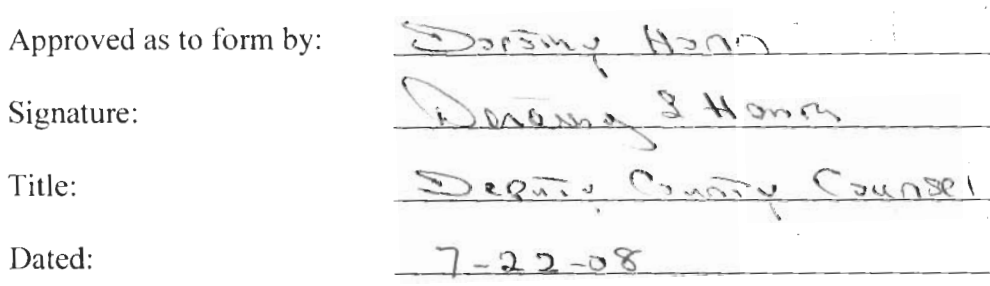 Approved as to form by: Dorothy Hann
Signature:
Title: Deputy County Counsel
Dated: 7-22-08